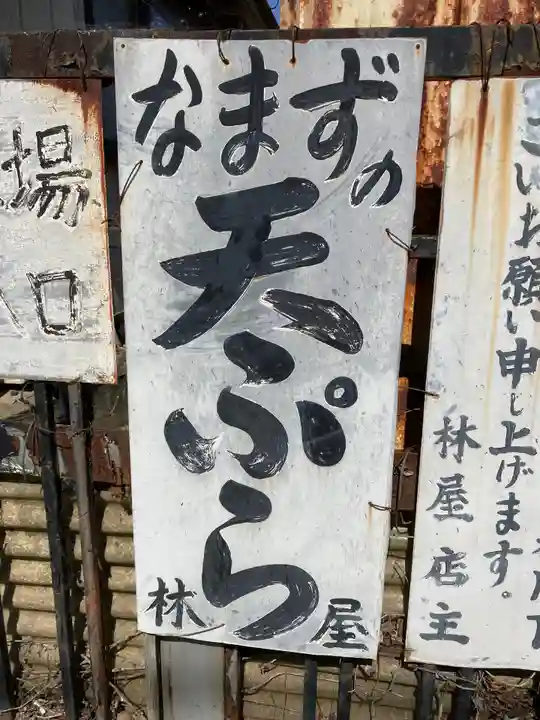 場
口
なまずの
天ぷら
林屋
お願い申し上げます。
林屋店主